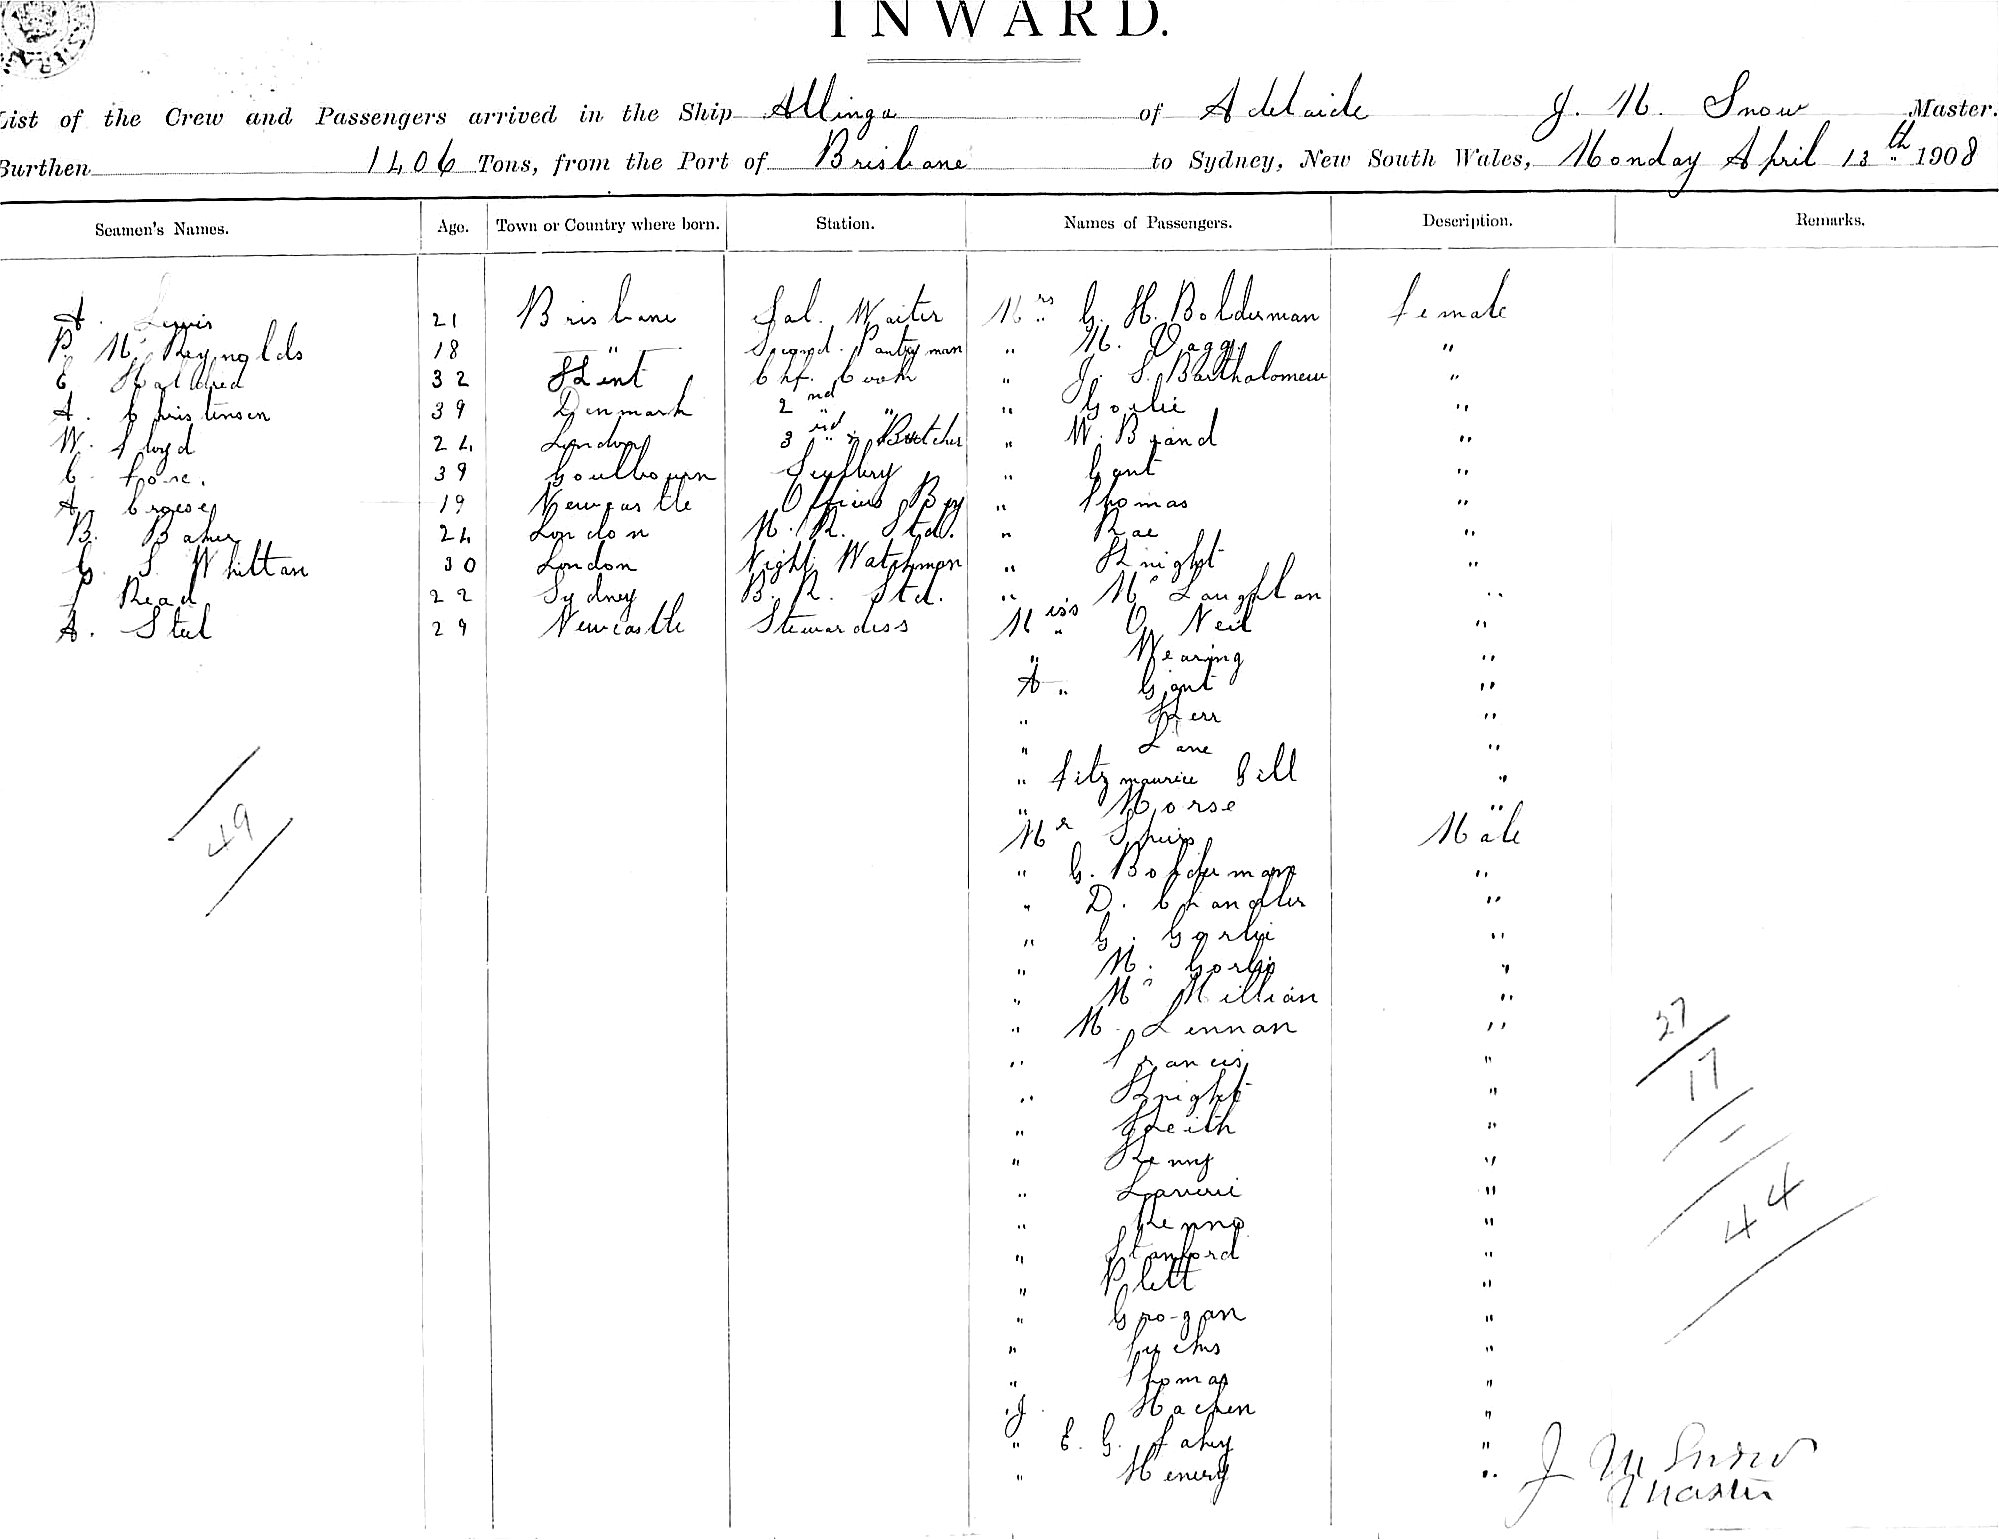 INWARD.
List of the Crew and Passengers arrived in the Ship Allinga of Adelaide J. M. Snow Master.
Burthen 1406 Tons, from the Port of Brisbane to Sydney, New South Wales, Monday April 13th 1908
Seamen's Names. Age. Town or Country where born. Station. Names of Passengers. Description. Remarks.
A. Lewis 21 Brisbane Sal. Waiter Mrs G. H. Bolderman Female
P. Mc Reynolds 18 " Second. Pantryman " M. "
E 32 Kent Chf. Cook " J. S. Bartholomew "
A. Christensen 39 Denmark 2nd " " Gorlie "
W. Floyd 24 London 3rd " Butcher " W. Brand "
C. 39 Goulbourn Scullery " Gant "
A. 19 Newcastle Officers Boy " Thomas "
B. Baker 24 London M. R. Std. " Rae "
G. S. Whittan 30 London Night Watchman " Knight "
J Read 22 Sydney B. R. Std. " Mc Laughlan "
A. Steel 29 Newcastle Stewardess Miss O Neil "
" Wearing "
A " Gant "
" Kerr "
" Lane "
" Fitzmaurice Gill "
" Morse "
Mr Male
49
" G. Bolderman "
" D. Chandler "
" G. Gorlie "
" M. Gorlie "
" Mc Millian "
" M. Lennan "
27
" Francis "
17
" Knight "
" Keith "
" Kenny "
" "
44
" "
" Stanford "
" Plett "
" Grogan "
" "
" Thomas "
" J. Hachen "
" E. G. Fahey "
" Henery "
J M Snow
Master